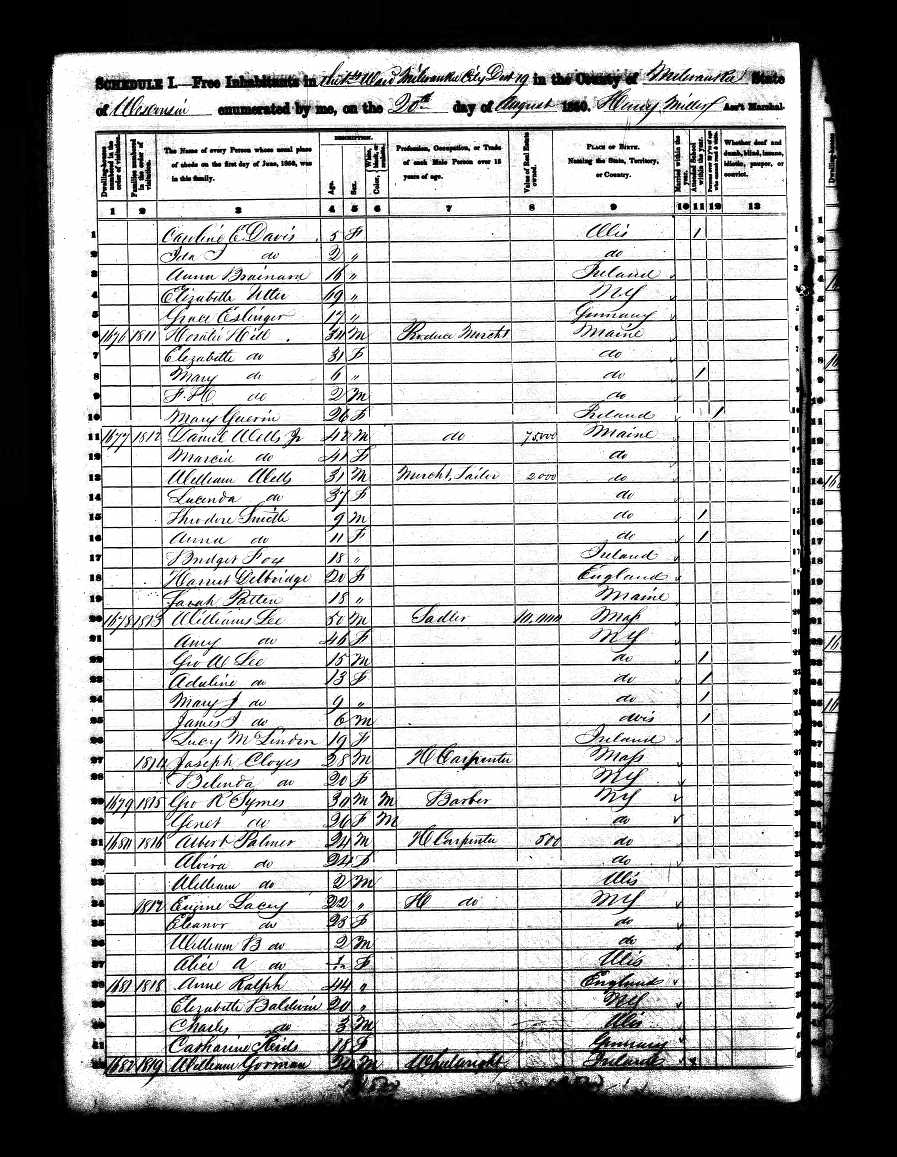 SCHEDULE I.—Free Inhabitants in the 1st Ward Milwaukee City Dist 19 in the County of Milwaukee State
of Wisconsin enumerated by me, on the 20th day of August 1850. Henry Miller Ass't Marshal.
Dwelling-houses numbered in the order of visitation.
Families numbered in the order of visitation.
The Name of every Person whose usual place of abode on the first day of June, 1850, was in this family.
DESCRIPTION.
Age.
Sex.
Color, White, black, or mulatto.
Profession, Occupation, or Trade of each Male Person over 15 years of age.
Value of Real Estate owned.
PLACE OF BIRTH. Naming the State, Territory, or Country.
Married within the year.
Attended School within the year.
Persons over 20 y'rs of age who cannot read & write.
Whether deaf and dumb, blind, insane, idiotic, pauper, or convict.
1 2 3 4 5 6 7 8 9 10 11 12 13
1 Caroline E Davis 5 F Wis 1
2 Ida I do 2 " do
3 Anna Brainard 16 " Ireland
4 Elizabeth Utter 49 " NY
5 Grace Eslinger 17 " Germany
6 1676 1811 Horatio Hill 34 M Produce Mercht Maine
7 Elezabeth do 31 F do
8 Mary do 6 " do 1
9 F. H do 2 M do
10 Mary Guerin 26 F Ireland 1
11 1677 1812 Daniel Wells Jr 42 M do 75000 Maine
12 Marcia do 41 F do
13 William Wells 31 M Mercht Tailor 2000 do
14 Lucinda do 37 F do
15 Theodore Smith 9 M do 1
16 Anna do 11 F do 1
17 Bridget Fox 18 " Ireland
18 Harriet Delbridge 20 F England
19 Sarah Patten 18 " Maine
20 1678 1813 Williams Lee 50 M Sadler 10,000 Mass
21 Amy do 46 F NY
22 Geo W Lee 15 M do 1
23 Adaline do 13 F do 1
24 Mary J do 9 " do 1
25 James I do 6 M Wis 1
26 Lucy McLinden 19 F Ireland
27 1814 Joseph Cloyes 28 M H Carpenter Mass
28 Belinda do 20 F NY
29 1679 1815 Geo R Symes 30 M M Barber NY
30 Genet do 26 F M do
31 1680 1816 Albert Palmer 24 M H Carpenter 500 do
32 Alvira do 24 F do
33 William do 2 M Wis
34 1817 Eugene Lacey 22 " H do NY
35 Eleanor do 23 F do
36 William B do 2 M do
37 Alice A do F Wis
38 1681 1818 Anne Ralph 44 " England
39 Elizabeth Baldwin 20 " NY
40 Charles do 3 M Wis
41 Catharine Reids 18 F Germany
42 1682 1819 William Gorman M Wheelwright Ireland